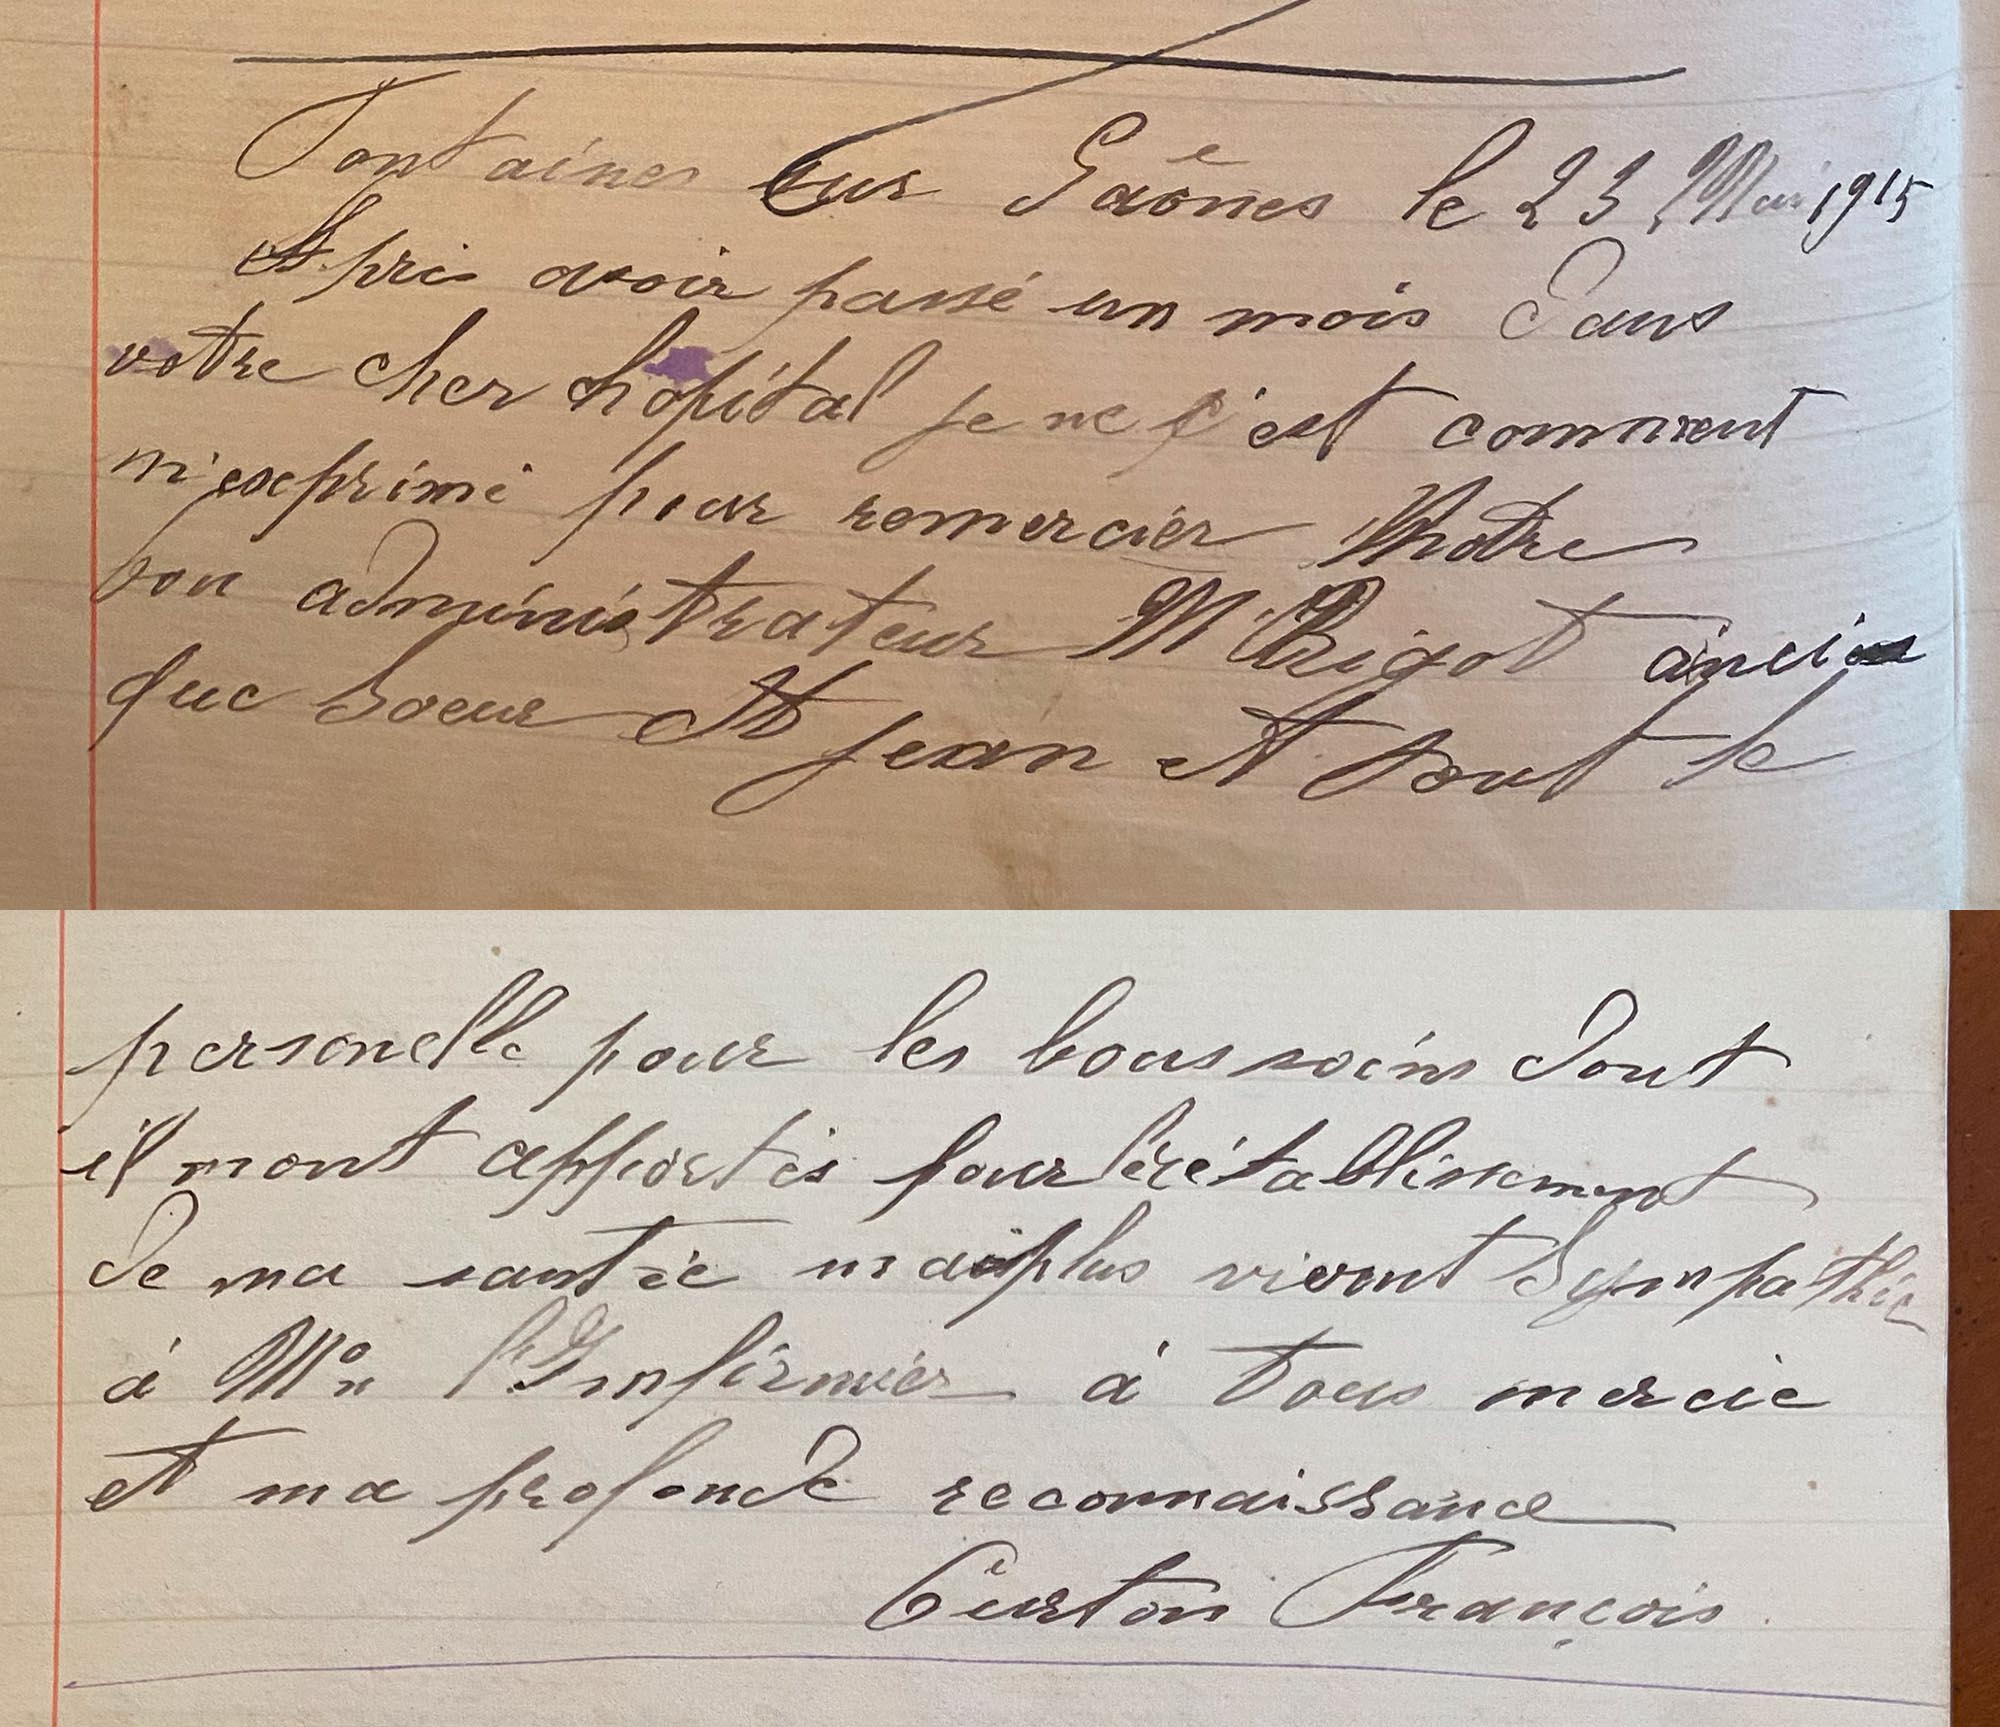 Fontaines sur Saônes le 23 Mai 1915
Apris avoir passé un mois dans
votre cher hôpital je ne s'est comment
m'exprimé pour remercier Notre
bon administrateur Mr Rigot ainci
que Soeur St jean et tout le
personelle pour les bons soins dont
il mont apportés pour lérétablissement
de ma santée mais plus vivent Sympathie
à Mon l'Infirmier à tous mercie
et ma profonde reconnaissance
François